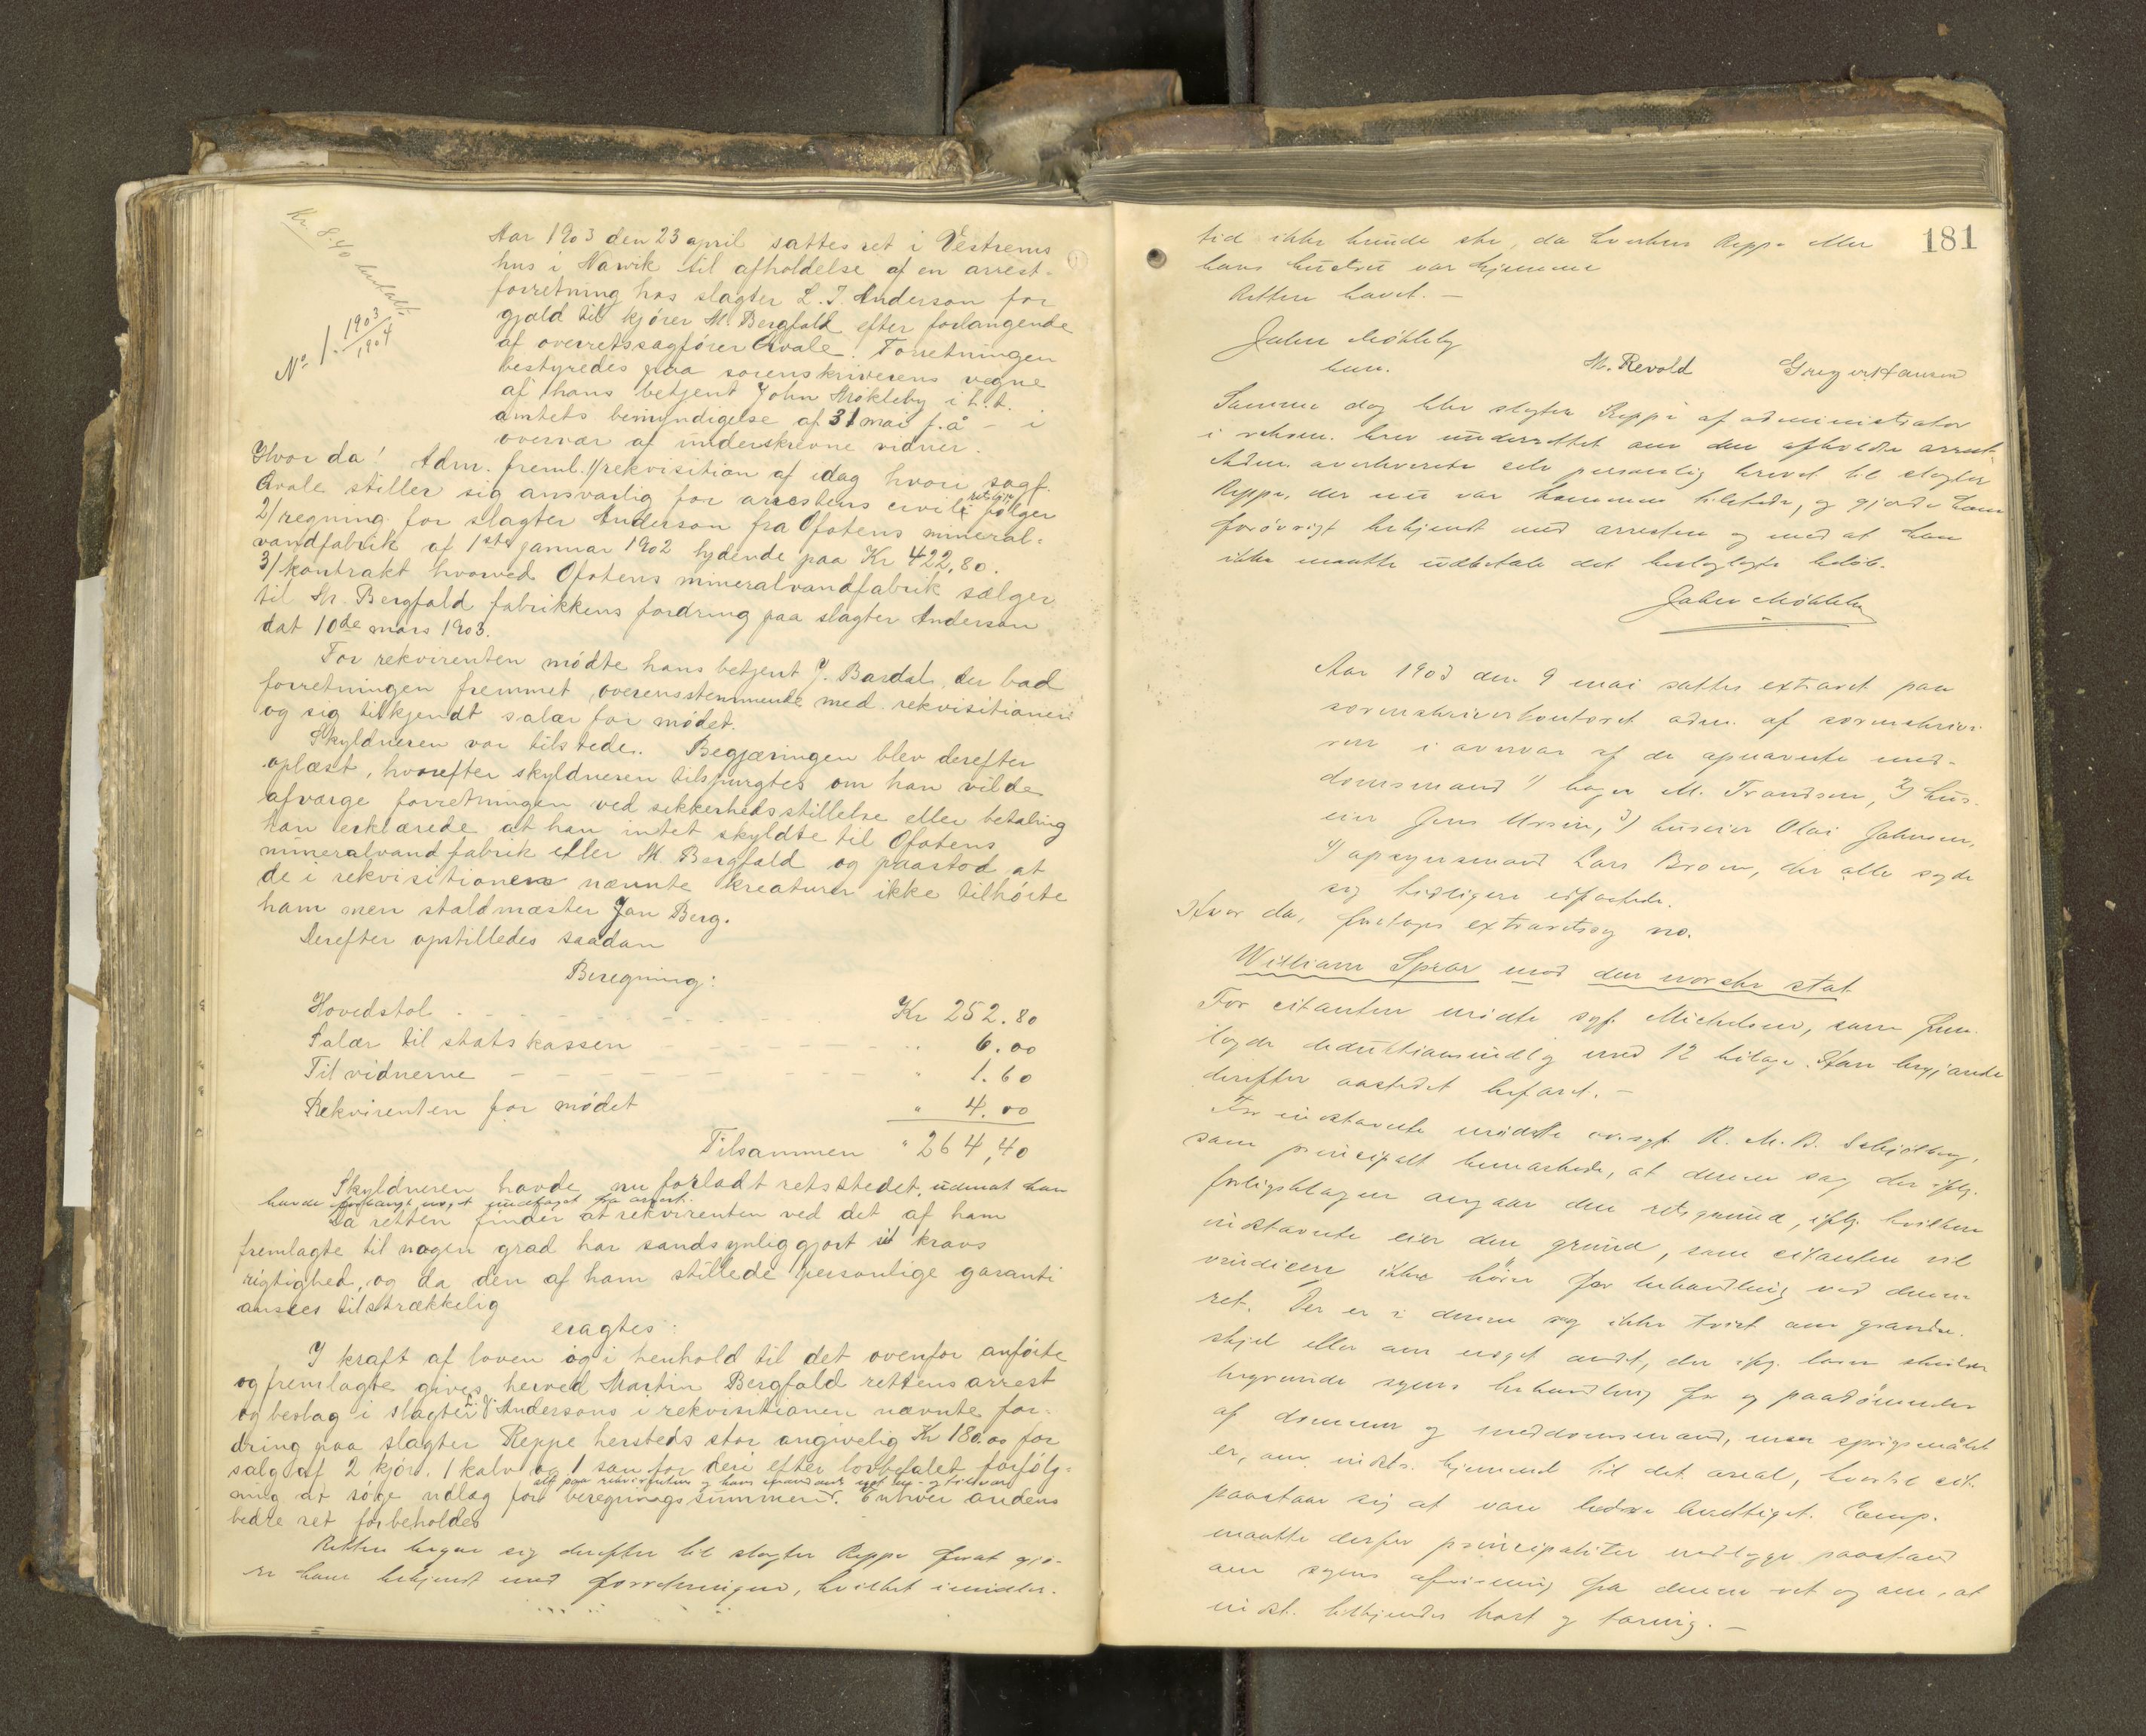 Kr. 8.40 betalt.
No. 1. 1903/1904
Aar 1903 den 23 april sattes ret i Vestrems
hus i Narvik til afholdelse af en arrest-
forretning hos slagter L. J. Anderson for
gjæld til kjører M. Bergfald efter forlangende
af overretssagfører Qvale. Forretningen
bestyredes paa sorenskriverens vegne
af hans betjent John Møkleby i h. t.
amtets bemyndigelse af 31 mai f. å - i
overvær af underskrevne vidner.
Hvor da! Adm. freml. 1/ rekvisition af idag hvori sagf.
Qvale stiller sig ansvarlig for arrestens civilretslige følger
2/ regning for slagter Anderson fra Ofotens mineral-
vandfabrik af 1ste januar 1902 lydende paa Kr 422,80.
3/ kontrakt hvorved Ofotens mineralvandfabrik sælger
til M. Bergfald fabrikkens fordring paa slagter Anderson
dat 10de mars 1903.
For rekvirenten mødte hans betjent J. Bardal der bad
forretningen fremmet overensstemmende med rekvisitionen
og sig tilkjendt salær for mødet.
Skyldneren var tilstede. Begjæringen blev derefter
oplæst, hvorefter skyldneren tilspurgtes om han vilde
afværge forretningen ved sikkerhedsstillelse eller betaling
han erklærede at han intet skyldte til Ofotens
mineralvandfabrik eller M. Bergfald og paastod at
de i rekvisitionen nævnte kreaturer ikke tilhørte
ham men staldmæster Jan Berg.
Derefter opstilledes saadan
Beregning:
Hovedstol Kr 252.80
Salær til statskassen " 6.00
Til vidnerne " 1.60
Rekvirenten for mødet " 4.00
Tilsammen " 264,40
Skyldneren havde nu forladt retsstedet, uden at han
havde forlangt noget undtaget fra arrest.
Da retten finder at rekvirenten ved det af ham
fremlagte til nogen grad har sandsynliggjort sit kravs
rigtighed, og da den af ham stillede personlige garanti
ansees tilstrækkelig
eragtes:
I kraft af loven og i henhold til det ovenfor anførte
og fremlagte gives herved Martin Bergfald rettens arrest
og beslag i slagter L. J. Andersons i rekvisitionen nævnte for-
dring paa slagter Reppe hersteds stor angivelig Kr 180.00 for
salg af 2 kjør. 1 kalv og 1 sau for deri efter lovbefalet forfølg-
ning at søge udlæg for beregningssummen. Enhver andens
alt paa rekvirentens og hans mandants
bedre ret forbeholdes
Retten begav sig derefter til slagter Reppe forat gjø-
re ham bekjendt med forretningen, hvilket imidler-
181
tid ikke kunde ske, da hverken Reppe eller
hans hustru var hjemme
Retten hævet. -
John Møkleby
M. Revold Greger Hansen
Samme dag blev slagter Reppe af administrator
i rekom. brev underrettet om den afholdte arrest.
Adm. overleverede selv personlig brevet til slagter
Reppe, der nu var kommen tilstede, og gjorde ham
forøvrigt bekjendt med arresten og med at han
ikke maatte udbetale det beslaglagte beløb.
John Møkleby
Aar 1903 den 9 mai sattes extraret paa
sorenskriverkontoret adm. af sorenskrive-
ren i overvær af de opnævnte med-
domsmænd 1/ bager M. Trandsen, 2/ hus-
eier Jens Ursin, 3/ huseier Olai Johnsen,
4/ opsynsmand Lars Broun, der alle sagde
sig tidligere edfæstede.
Hvor da, foretoges extraretssag no.
William Spear mod den norske stat
For citanten mødte sagf. Michelsen, som frem-
lagde deduktionsindlæg med 12 bilage. Han begjærede
derefter aastedet befaret. -
For indstævnte mødte ov.sagf. R. M. B. Schjølberg,
som principalt bemærkede, at denne sag der iflg.
forligsklagen angaar den retsgrund, iflg. hvilken
indstævnte eier den grund, som citanten vil
vindicere ikke hører for behandling ved denne
ret. Der er i denne sag ikke tvist om grænse-
skjel eller om noget andet, der iflg. loven skulde
begrunde sagens behandling for og paadømmelse
af dommer og meddomsmænd, men spørgsmålet
er, om indst. hjemmel til det areal, hvortil cit.
paastaar sig at være bedre berettiget. Comp.
maatte derfor principaliter nedlægge paastand
om sagens afvisning fra denne ret og om, at
indst. tilkjendes kost og tæring. -